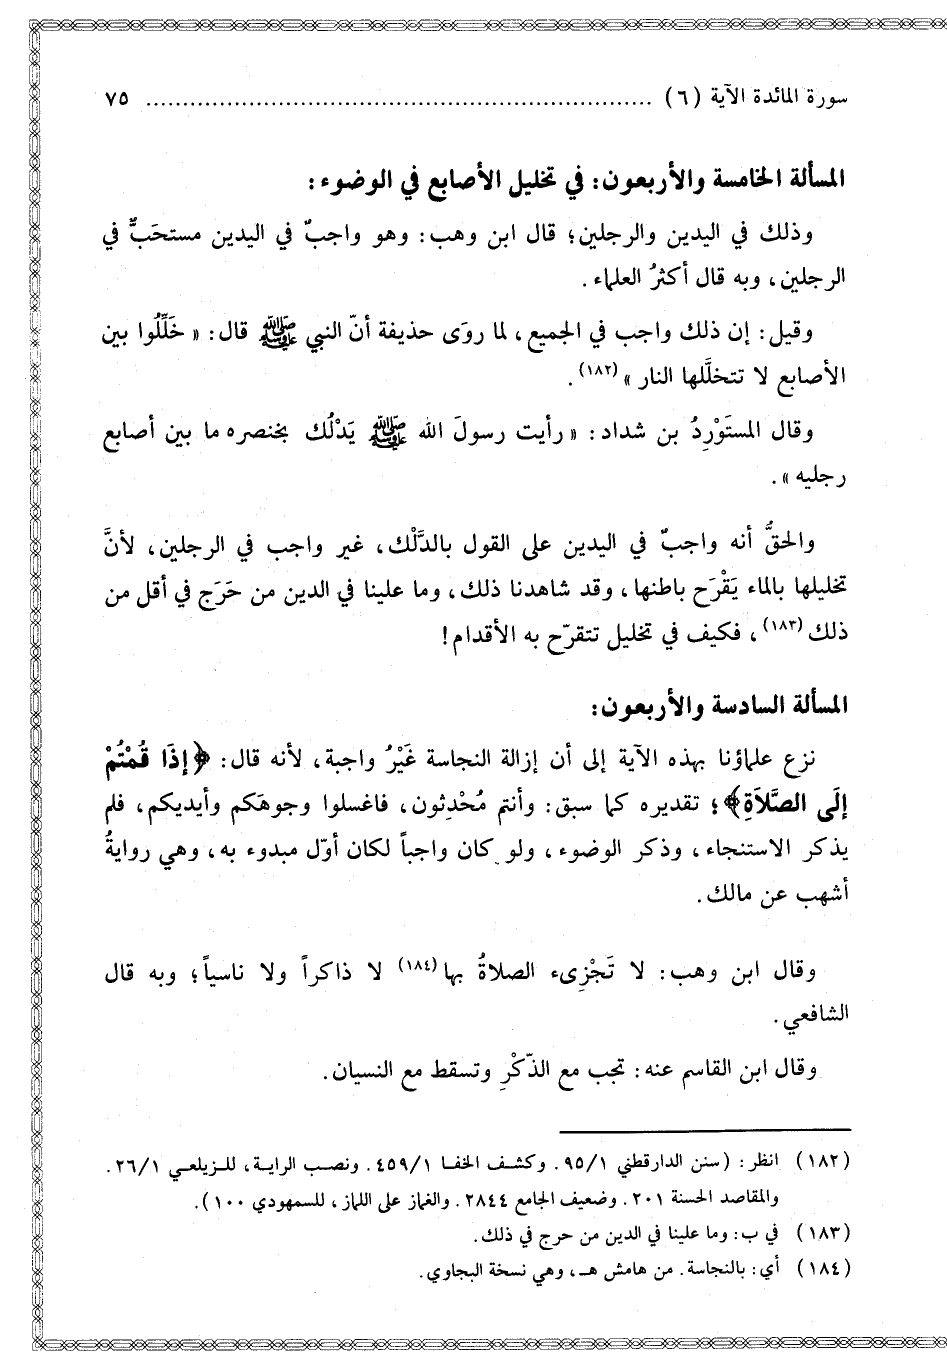 سورة المائدة الآية (٦) ...................................................................... ٧٥
المسألة الخامسة والأربعون: في تخليل الأصابع في الوضوء:
وذلك في اليدين والرجلين؛ قال ابن وهب: وهو واجبٌ في اليدين مستحَبٌّ في
الرجلين، وبه قال أكثرُ العلماء.
وقيل: إن ذلك واجب في الجميع، لما روَى حذيفة أنّ النبي ﷺ قال: «خَلِّلُوا بين
الأصابع لا تتخلَّلها النار»(١٨٢).
وقال المستَوْرِدُ بن شداد: «رأيت رسولَ الله ﷺ يَدْلُك بخنصره ما بين أصابع
رجليه».
والحقُّ أنه واجبٌ في اليدين على القول بالدَّلْك، غير واجب في الرجلين، لأنَّ
تخليلها بالماء يَقْرَح باطنها، وقد شاهدنا ذلك، وما علينا في الدين من حَرَج في أقل من
ذلك(١٨٣)، فكيف في تخليل تتقرّح به الأقدام!
المسألة السادسة والأربعون:
نزع علماؤنا بهذه الآية إلى أن إزالة النجاسة غَيْرُ واجبة، لأنه قال: ﴿إذَا قُمْتُمْ
إلَى الصَّلاَةِ﴾؛ تقديره كما سبق: وأنتم مُحْدِثون، فاغسلوا وجوهَكم وأيديكم، فلم
يذكر الاستنجاء، وذكر الوضوء، ولو كان واجباً لكان أوّل مبدوء به، وهي روايةُ
أشهب عن مالك.
وقال ابن وهب: لا تَجْزِىء الصلاةُ بها(١٨٤) لا ذاكراً ولا ناسياً؛ وبه قال
الشافعي.
وقال ابن القاسم عنه: تجب مع الذّكْرِ وتسقط مع النسيان.
(١٨٢) انظر: (سنن الدارقطني ٩٥/١. وكشف الخفا ٤٥٩/١. ونصب الراية، للزيلعي ٢٦/١.
والمقاصد الحسنة ٢٠١. وضعيف الجامع ٢٨٤٤. والغماز على اللماز، للسمهودي ١٠٠).
(١٨٣) في ب: وما علينا في الدين من حرج في ذلك.
(١٨٤) أي: بالنجاسة. من هامش هـ، وهي نسخة البجاوي.